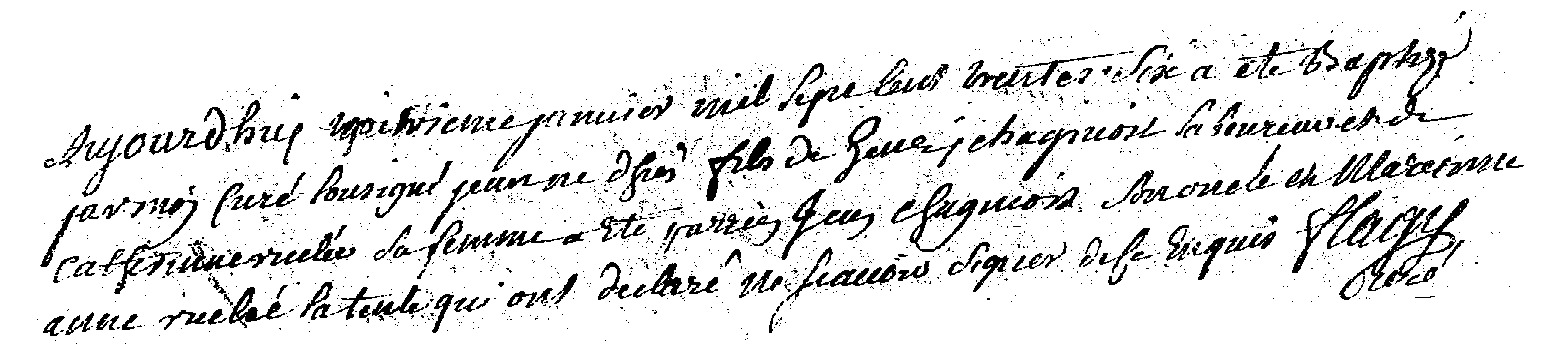 Aujourdhuij janvier mil sept cent trente Six a ete Baptizé
par moij Curé sousigné jean né dhier fils de chagniost laboureur et de
Catherine ruelée sa femme a ete parrin chagniost Son oncle et Mareinne
anne ruelée sa tente qui ont declaré ne scavoir signer de ce Enquis Flagy
Curé